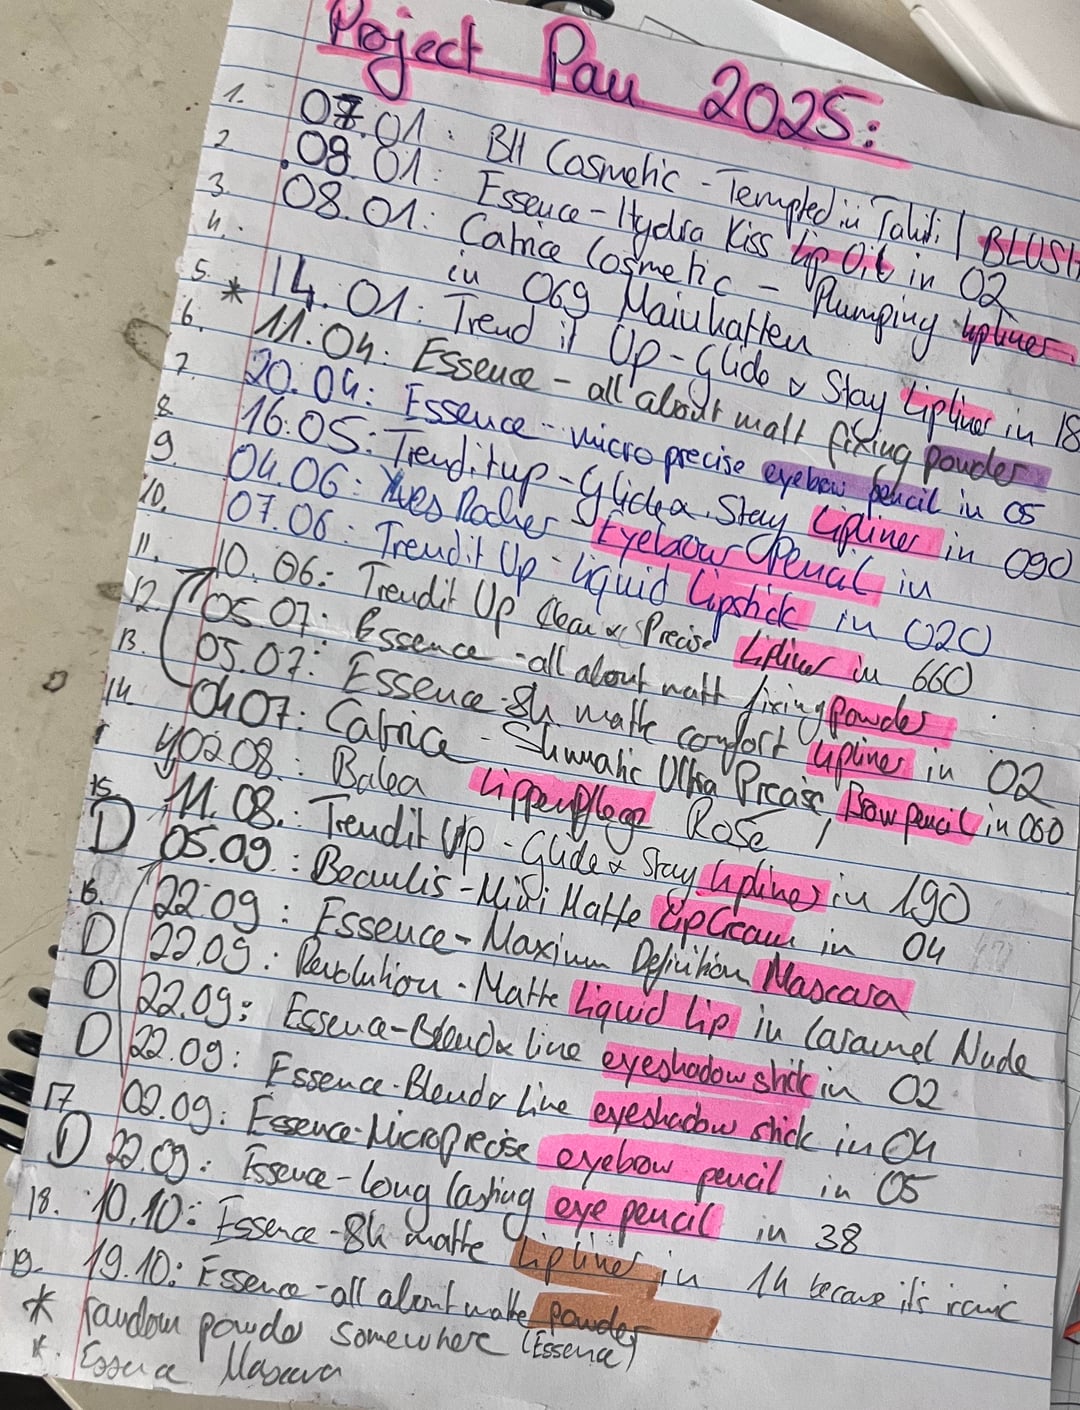 Project Pan 2025:
1. 07.01: BH Cosmetic - Tempted in Tahiti | BLUSH
2 .08.01: Essence - Hydra Kiss Lip Oil in 02
3. 08.01: Catrice Cosmetic - Plumping Lipliner
in 069 Mainhatten
4. * 14.01: Trend it Up - Glide & Stay Lipliner in 18
5. 11.04: Essence - all about matt fixing powder
6. 20.04: Essence - micro precise eyebrow pencil in 05
7. 16.05: Trenditup - Glide & Stay Lipliner in 090
8. 04.06: Yves Rocher Eyebrow Pencil in
9. 07.06: Trendit Up - Liquid Lipstick in 020
10. 10.06: Trendit Up Clean & Precise Lipliner in 660
11. 05.07: Essence - all about matt fixing powder
12 05.07: Essence - 8h matte comfort Lipliner in 02
13. 04.07: Catrice - Slimmatic Ultra Precise Brow pencil in 060
14. 02.08.: Balea Lippenpflege Rosé
15 11.08.: Trendit Up - Glide & Stay Lipliner in 190
D 05.09.: Beaulis - Mixi Matte LipCream in 04
16. 22.09: Essence - Maximum Definition Mascara
D 22.09.: Revolution - Matte Liquid Lip in Caramel Nude
D 22.09: Essence - Blend & line eyeshadow stick in 02
D 22.09: Essence - Blend & Line eyeshadow stick in 04
17 02.09: Essence - Microprecise eyebrow pencil in 05
D 22.09: Essence - long lasting eye pencil in 38
18. 10.10: Essence - 8h matte Lipliner in 14 because it's iconic
19. 19.10: Essence - all about matte powder
* random powder somewhere (Essence)
* Essence Mascara